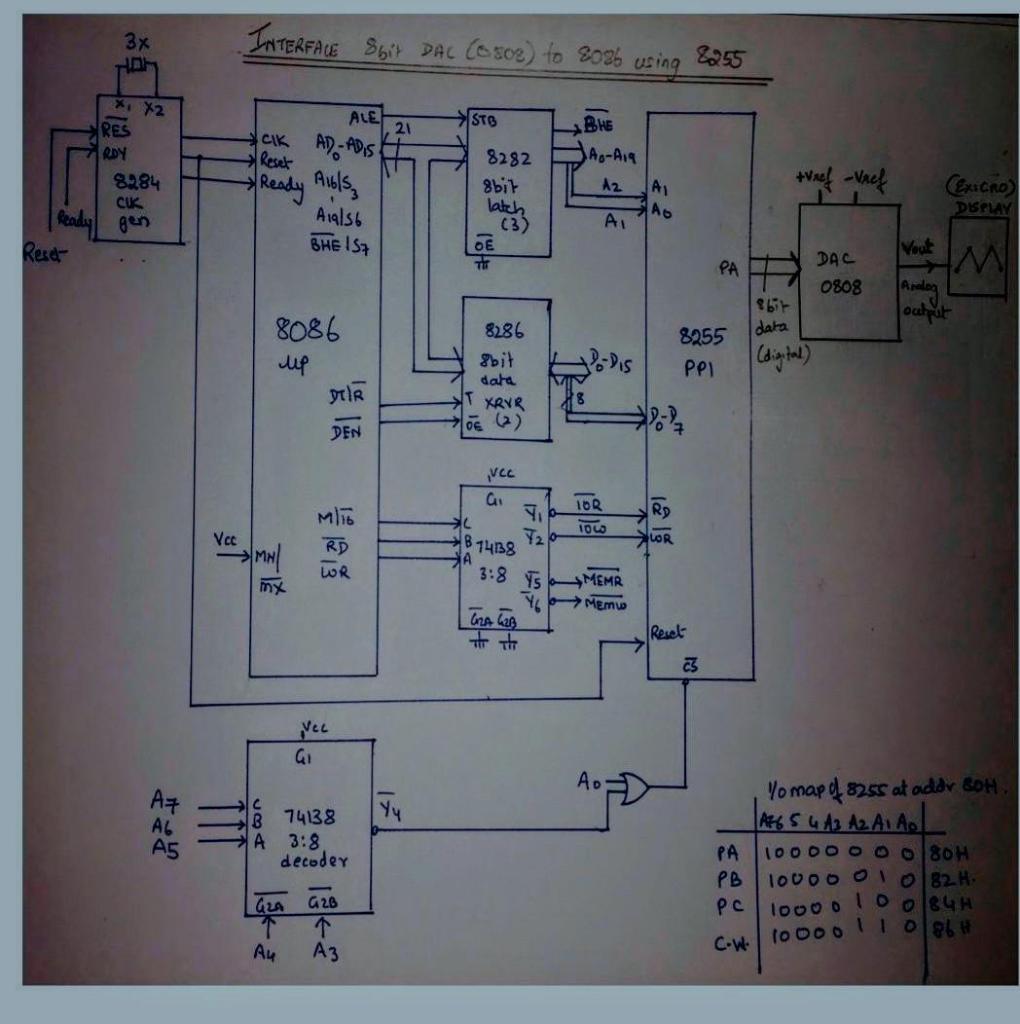 INTERFACE 8bit DAC (0808) to 8086 using 8255
3x
X1 X2
RES
RDY
8284
CLK
gen
Ready
Reset
CLK
Reset
Ready
ALE
AD0-AD15
A16/S3
A19/S6
BHE/S7
8086
µP
DT/R
DEN
M/IO
RD
WR
Vcc
MN/
MX
21
STB
8282
8bit
latch
(3)
OE
BHE
A0-A19
A2
A1
8286
8bit
data
XRVR
(2)
T
OE
D0-D15
8
Vcc
G1
C
B
A
74138
3:8
Y1
Y2
Y5
Y6
G2A G2B
IOR
IOW
MEMR
MEMW
A1
A0
PA
8255
PPI
D0-D7
RD
WR
Reset
CS
8bit
data
(digital)
+Vref -Vref
DAC
0808
Vout
Analog
output
DISPLAY
Vcc
G1
A7
A6
A5
C
B
A
74138
3:8
decoder
Y4
G2A G2B
A4 A3
A0
I/o map of 8255 at addr 80H.
A7 6 5 4 A3 A2 A1 A0
PA 1 0 0 0 0 0 0 0 80H
PB 1 0 0 0 0 0 1 0 82H.
PC 1 0 0 0 0 1 0 0 84H
C.W. 1 0 0 0 0 1 1 0 86H